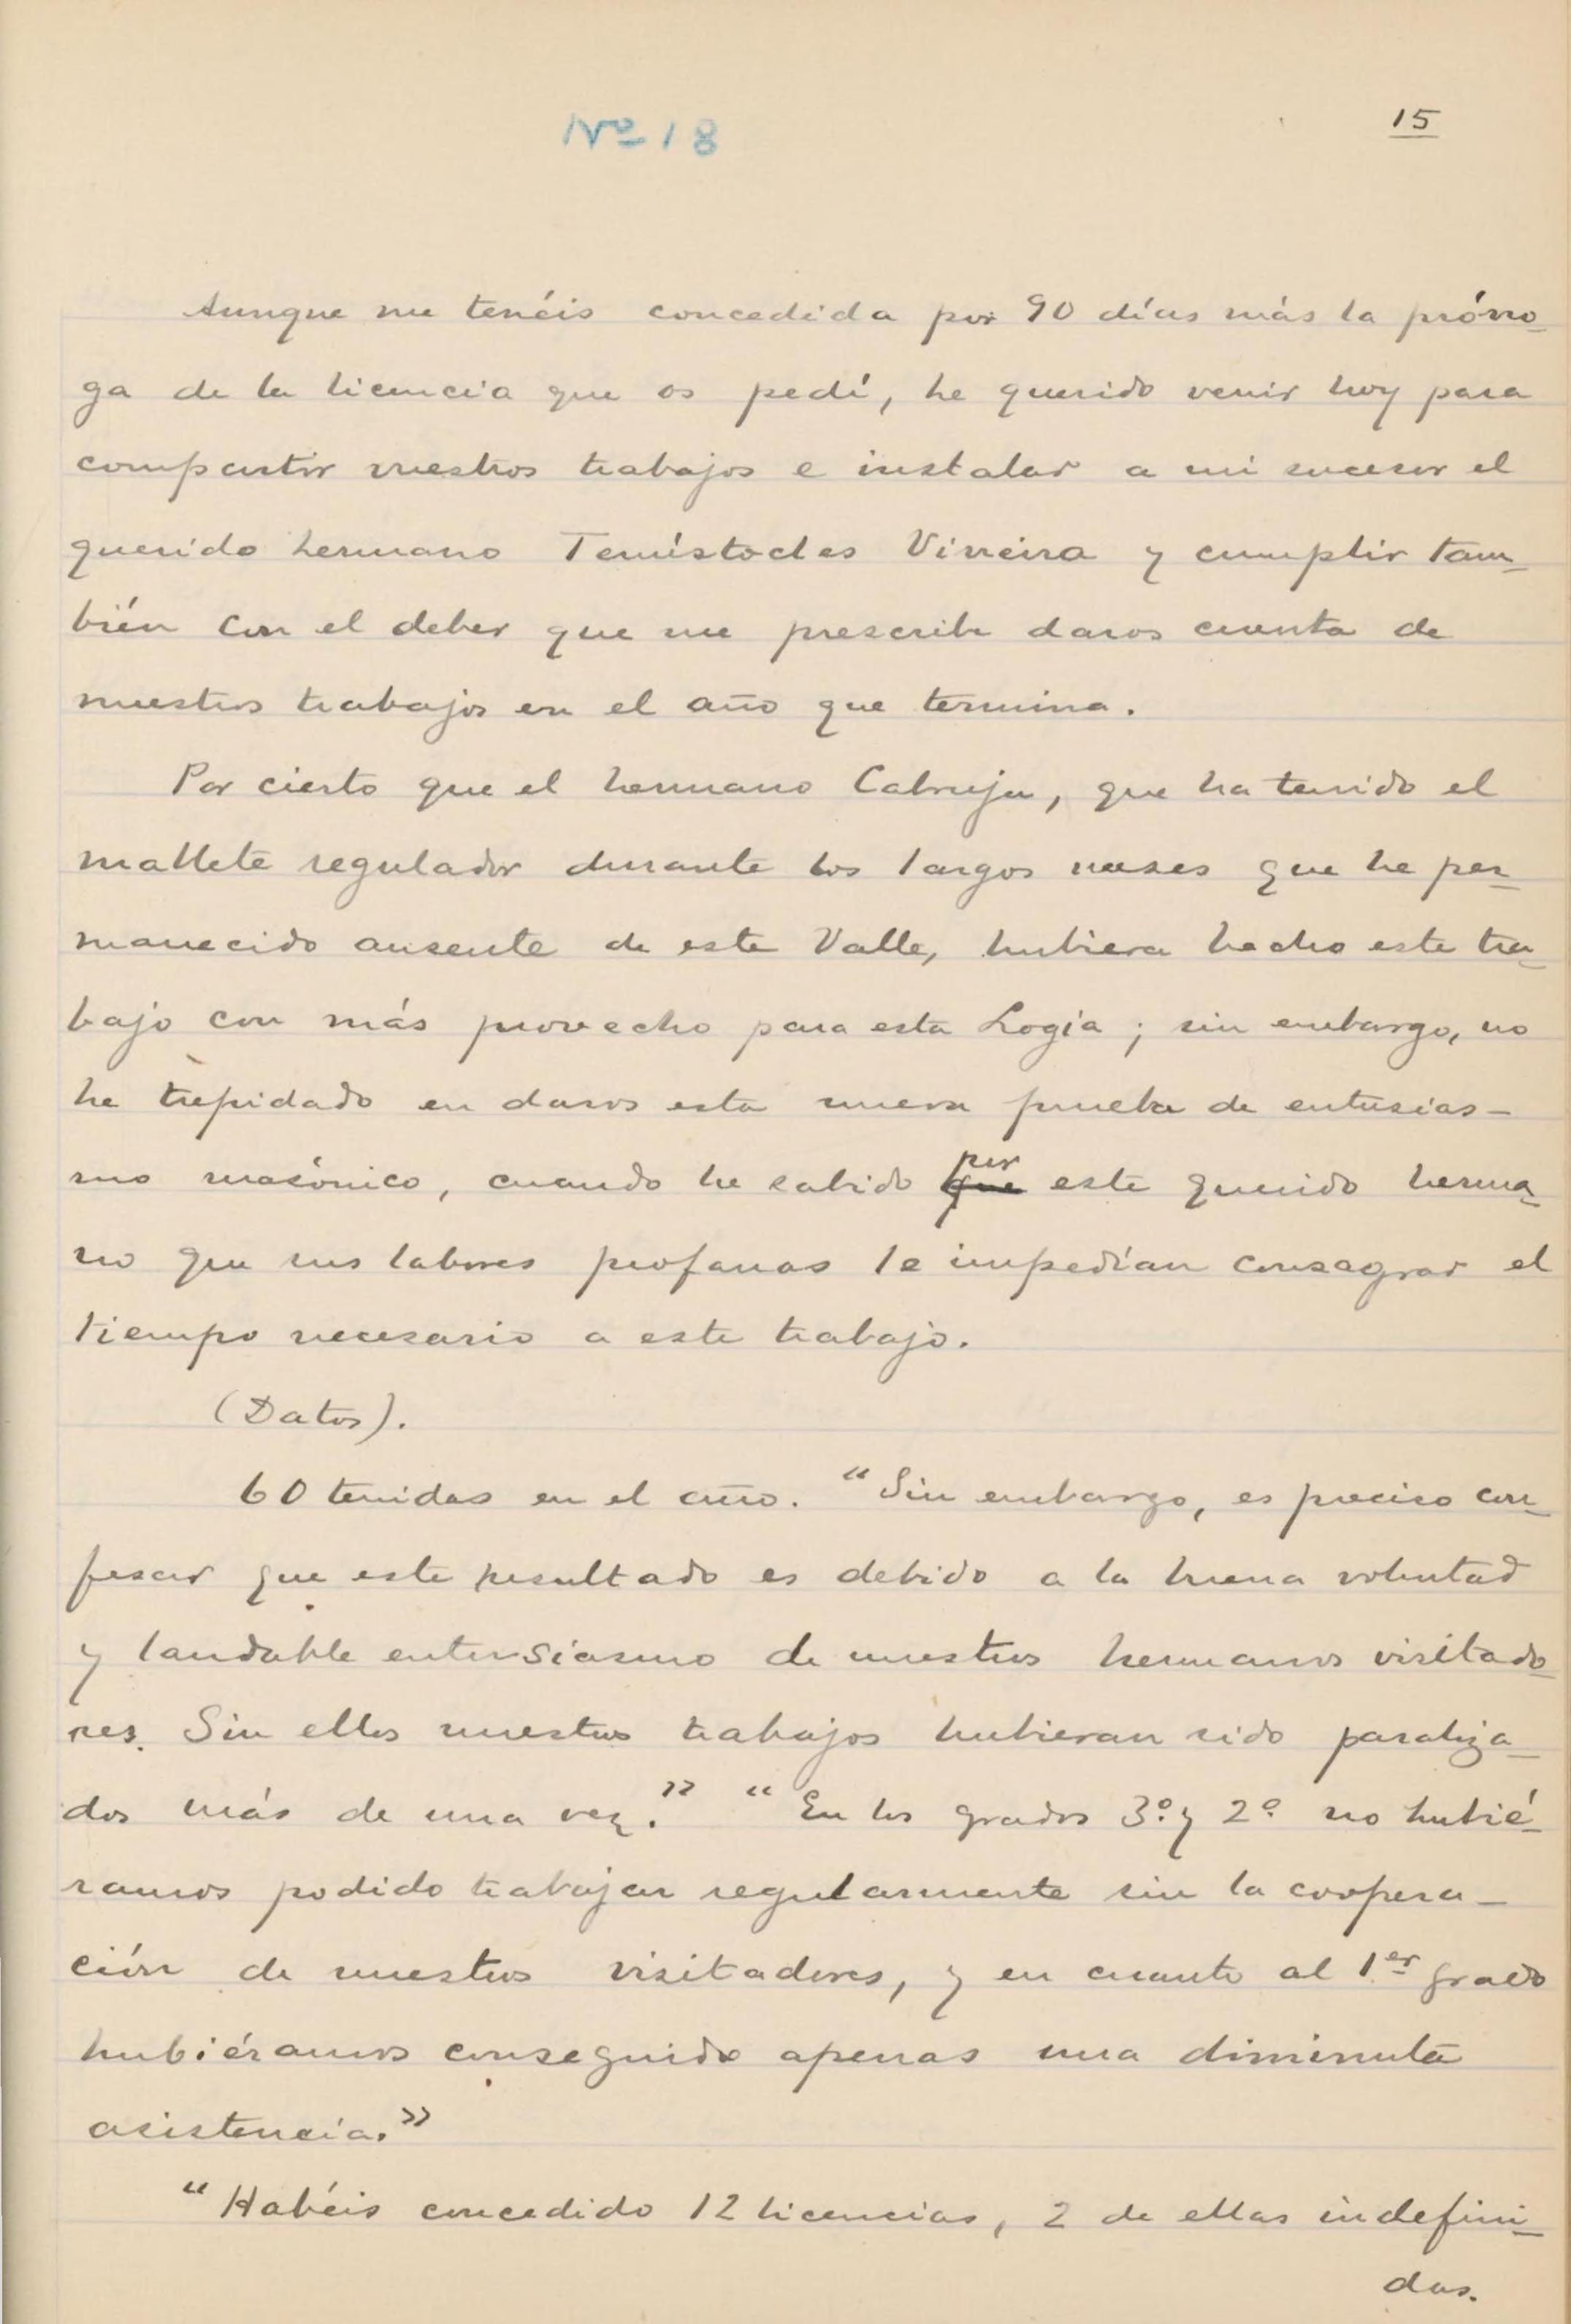 Nº 18
15
Aunque me tenéis concedida por 90 días más la prórro-
ga de la licencia que os pedí, he querido venir hoy para
compartir vuestros trabajos e instalar a mi sucesor el
querido hermano Temístocles Virreira y cumplir tam-
bién con el deber que me prescribe daros cuenta de
nuestros trabajos en el año que termina.
Por cierto que el hermano Cabruja, que ha tenido el
mallete regulador durante los largos meses que he per-
manecido ausente de este Valle, hubiera hecho este tra-
bajo con más provecho para esta Logia; sin embargo, no
he trepidado en daros esta nueva prueba de entusias-
mo masónico, cuando he sabido por
que este querido herma-
no que sus labores profanas le impedían consagrar el
tiempo necesario a este trabajo.
(Datos).
60 tenidas en el año. "Sin embargo, es preciso con-
fesar que este resultado es debido a la buena voluntad
y laudable entusiasmo de nuestros hermanos visitado-
res. Sin ellos nuestros trabajos hubieran sido paraliza-
dos más de una vez." "En los grados 3º y 2º no hubié-
ramos podido trabajar regularmente sin la coopera-
ción de nuestros visitadores, y en cuanto al 1er grado
hubiéramos conseguido apenas una diminuta
asistencia."
"Habéis concedido 12 licencias, 2 de ellas indefini-
das.